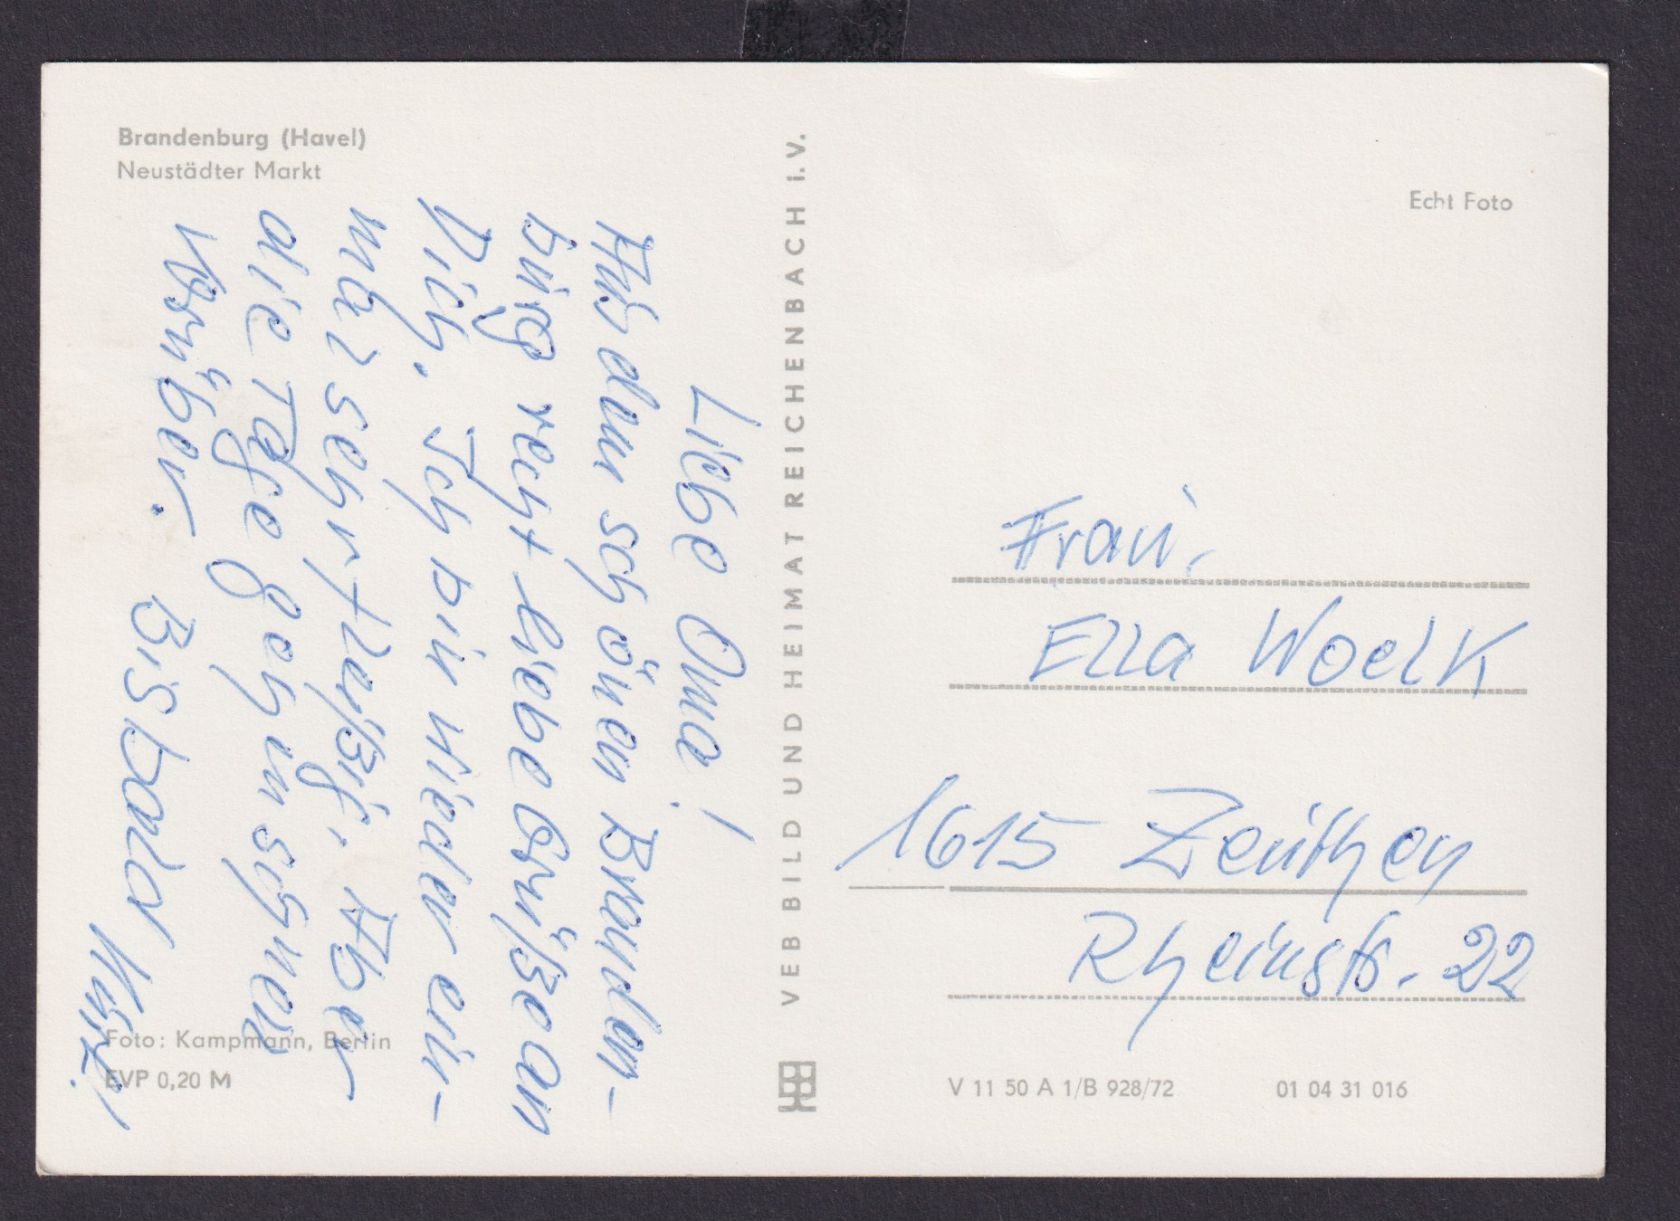 Brandenburg (Havel)
Neustädter Markt
Liebe Oma!
Aus dem schönen Branden-
burg recht liebe Grüße an
Dich. Ich bin wieder ein-
mal sehr fleißig. Aber
die Tage gehen schnell
vorüber.
Bis bald
Foto: Kampmann, Berlin
EVP 0,20 M
VEB BILD UND HEIMAT REICHENBACH i.V.
Echt Foto
Frau
Ella Woelk
1615 Zeuthen
Rheinstr. 22
V 11 50 A 1/B 928/72 01 04 31 016